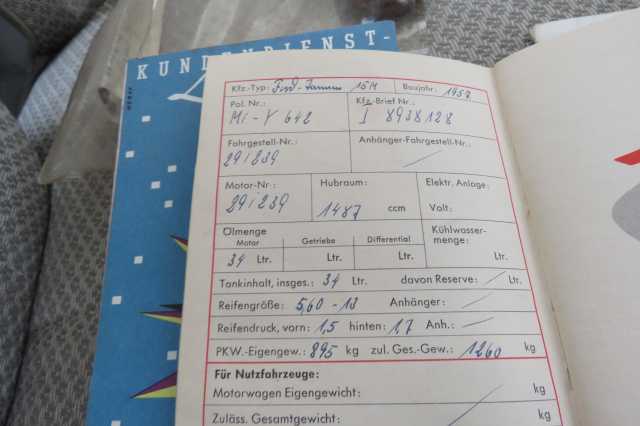 KUNDENDIENST-
Kfz.-Typ: Ford-Taunus 15M Baujahr: 1957
Pol. Nr.: Kfz.-Brief Nr.:
Mi-Y 642 I 8938128
Fahrgestell-Nr.: Anhänger-Fahrgestell-Nr.:
291239
Motor-Nr.: Hubraum: Elektr. Anlage:
291239 1487 ccm Volt:
Ölmenge Kühlwasser-
Motor Getriebe Differential menge:
34 Ltr. Ltr. Ltr. Ltr.
Tankinhalt, insges.: 34 Ltr. davon Reserve: Ltr.
Reifengröße: 5,60-13 Anhänger:
Reifendruck, vorn: 1,5 hinten: 1,7 Anh.:
PKW.-Eigengew.: 895 kg zul. Ges.-Gew.: 1260 kg
Für Nutzfahrzeuge:
Motorwagen Eigengewicht: kg
Zuläss. Gesamtgewicht: kg